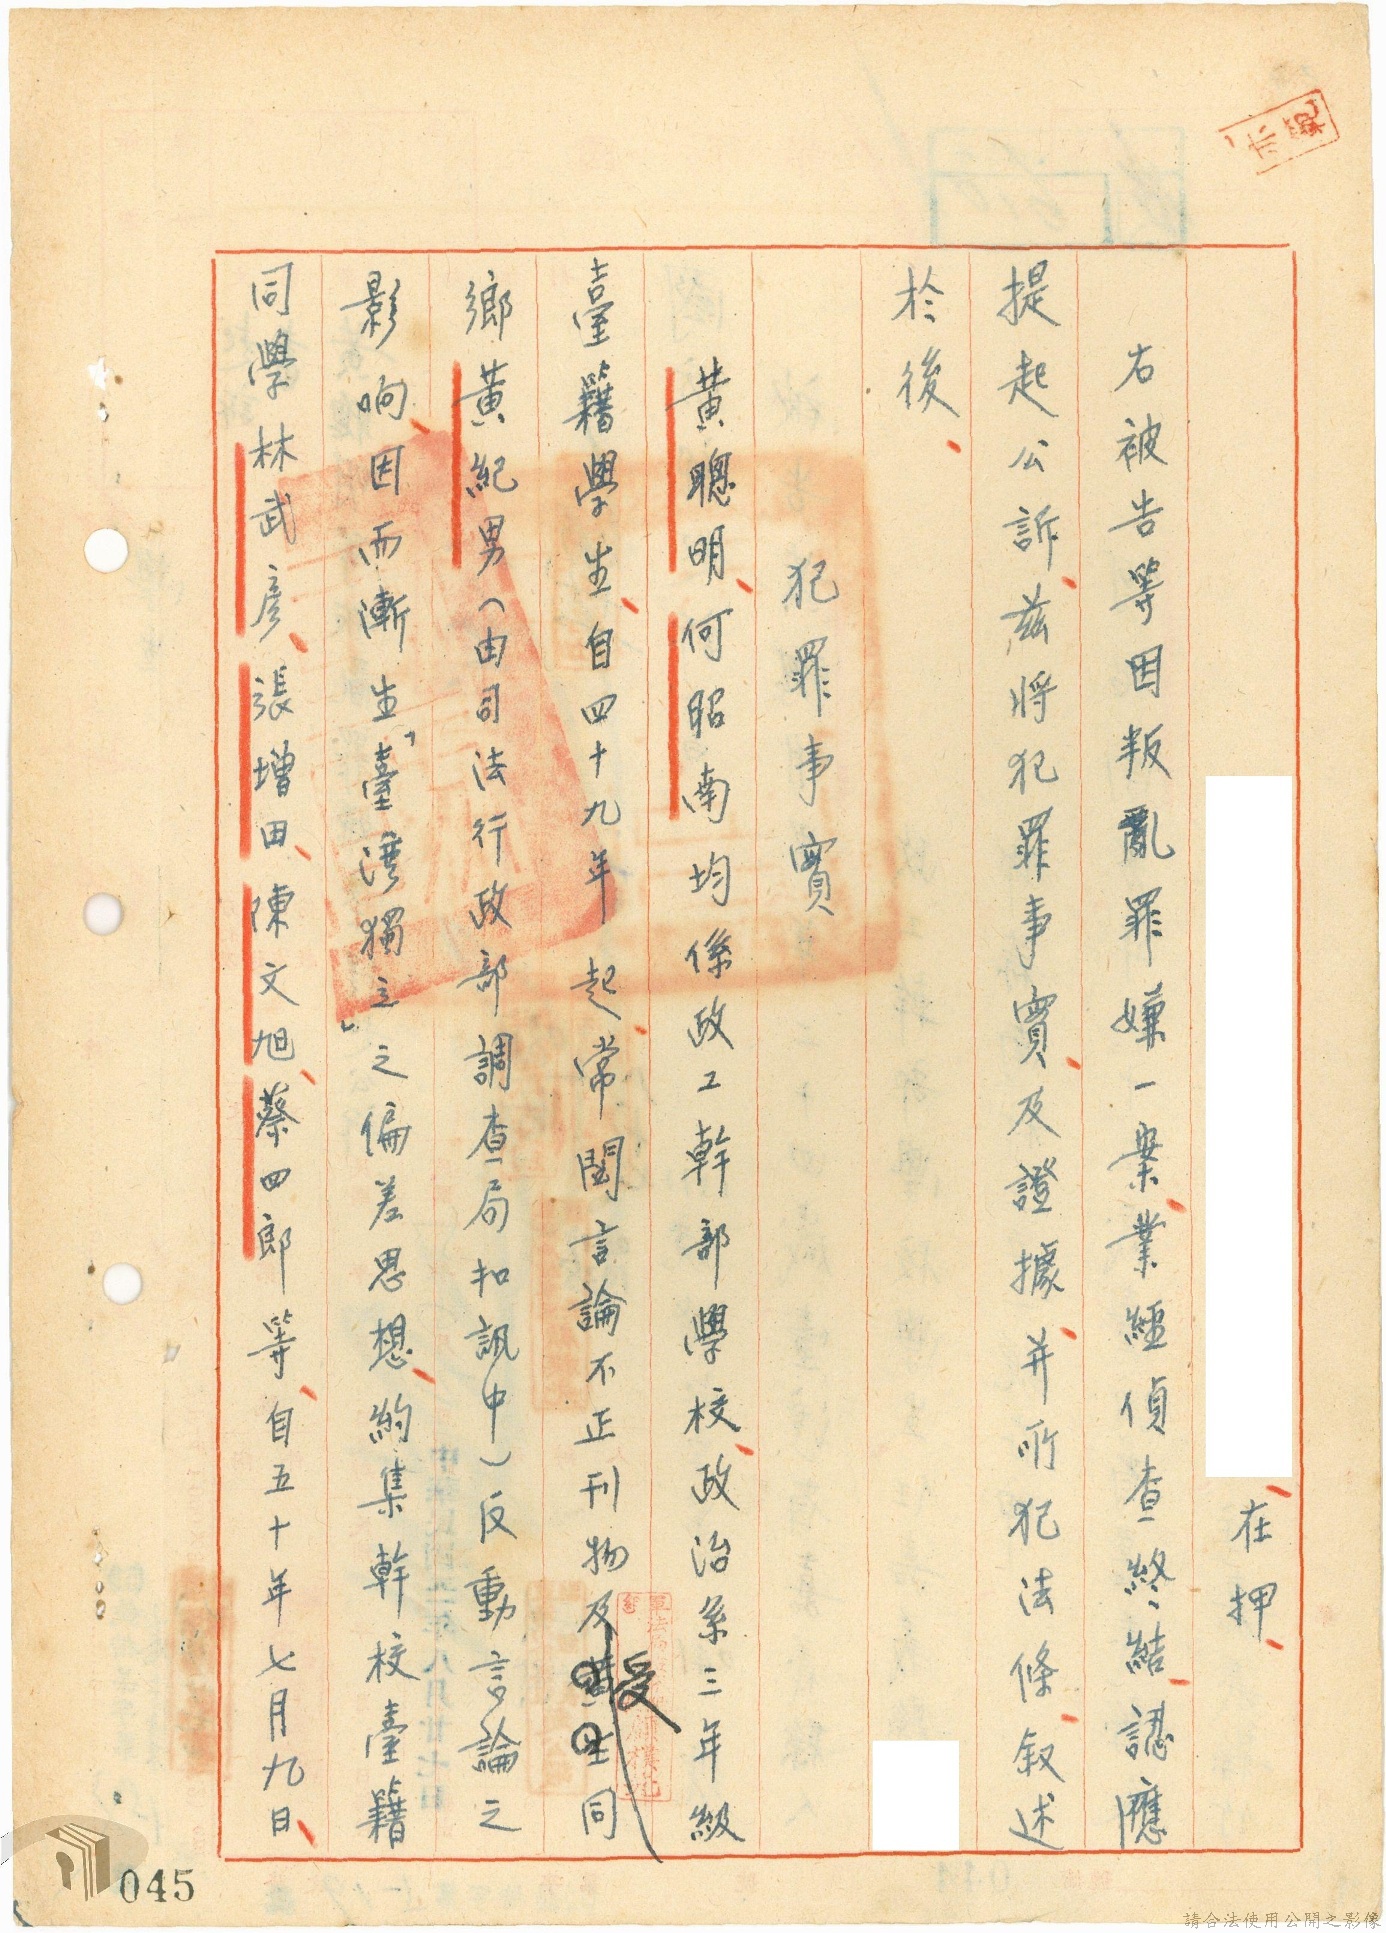 在押
右被告等因叛亂罪嫌一案業經偵查終結認應
提起公訴茲將犯罪事實及證據并所犯法條叙述
於後
犯罪事實
黃聰明何昭南均係政工幹部學校政治系三年級
臺籍學生自四十九年起常閱言論不正刊物及受同
鄉黃紀男（由司法行政部調查局扣訊中）反動言論之
影响因而漸生「臺灣獨立」之偏差思想約集幹校臺籍
同學林武彥張增田陳文旭蔡四郎等自五十年七月九日
045
請合法使用公開之影像